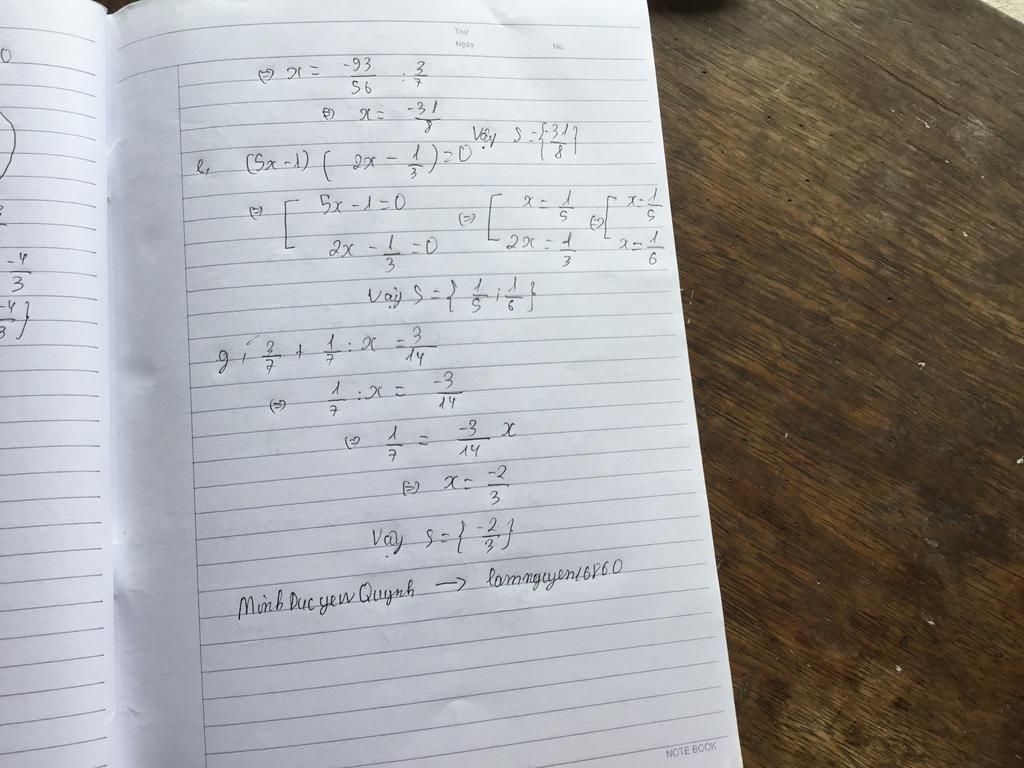 0
-4/3
-4/3}
Thứ
Ngày No.
⇔ x = -93/56 : 3/7
⇔ x = -31/8
Vậy S = {-31/8}
e, (5x-1)(2x - 1/3) = 0
⇔ [ 5x-1=0 ⇔ [ x = 1/5 ⇔ [ x = 1/5
2x - 1/3 = 0 2x = 1/3 x = 1/6
Vậy S = { 1/5 ; 1/6 }
g, 3/7 + 1/7 : x = 3/14
⇔ 1/7 : x = -3/14
⇔ 1/7 = -3/14 x
⇔ x = -2/3
Vậy S = { -2/3 }
Quỳnh → lamnguyen
NOTE BOOK